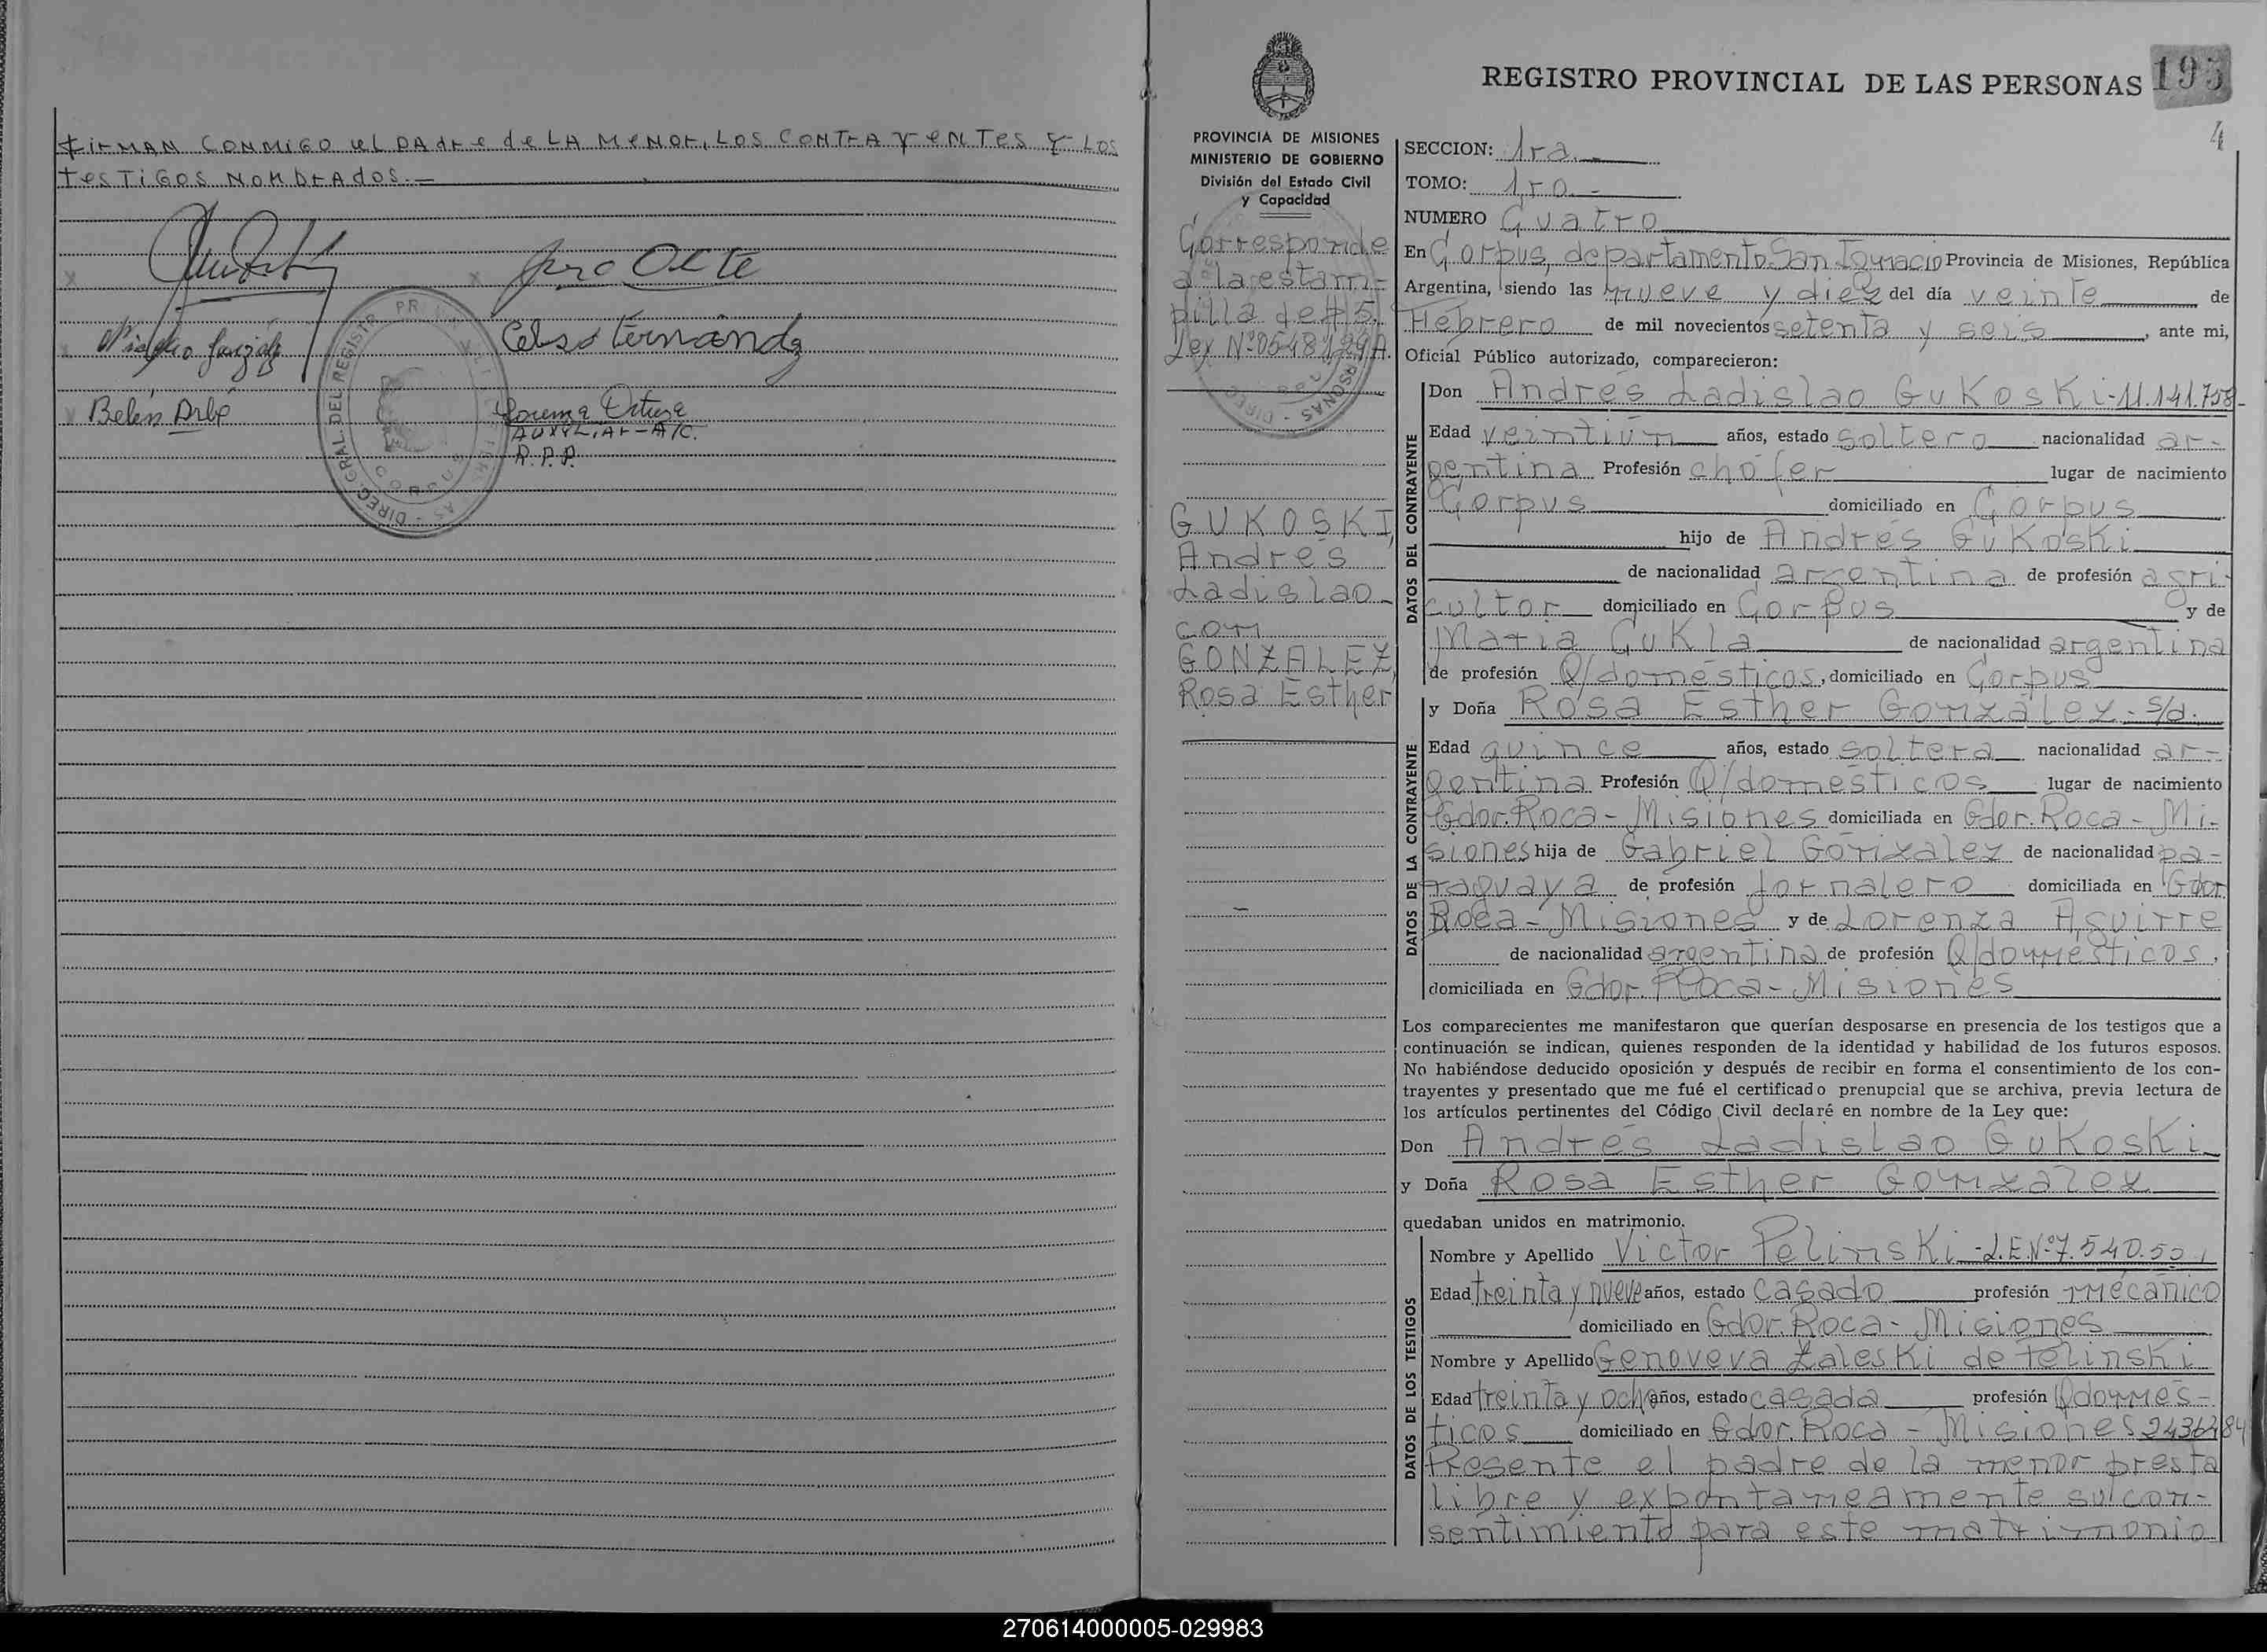 FIRMAN CONMIGO eL PADre de LA MeNOr, LOS CONTrAYeNTes Y LOS
TesTiGOS NOMbrAdos.—
Celso Fernández
Belén
AUXILiAr - A/C.
R.P.P.
REGISTRO PROVINCIAL DE LAS PERSONAS 195
4
PROVINCIA DE MISIONES
MINISTERIO DE GOBIERNO
División del Estado Civil
y Capacidad
Corresponde
a la estam-
pilla de $ 5
Ley Nº
GUKOSKI,
Andrés
Ladislao-
con
GONZALEZ,
Rosa Esther
SECCION: 1ra.
TOMO: 1ro.-
NUMERO Cuatro
En Corpus, departamento San Ignacio Provincia de Misiones, República
Argentina, siendo las nueve y diez del día veinte de
Febrero de mil novecientos setenta y seis, ante mi,
Oficial Público autorizado, comparecieron:
DATOS DEL CONTRAYENTE
Don Andrés Ladislao Gukoski-11.141.758-
Edad veintiún años, estado soltero nacionalidad ar-
gentina Profesión chófer lugar de nacimiento
Corpus domiciliado en Corpus
hijo de Andrés Gukoski
de nacionalidad argentina de profesión agri-
cultor domiciliado en Corpus y de
María Cukla de nacionalidad argentina
de profesión Q/domésticos, domiciliado en Corpus
DATOS DE LA CONTRAYENTE
y Doña Rosa Esther González- s/d.
Edad quince años, estado soltera nacionalidad ar-
gentina Profesión Q/domésticos lugar de nacimiento
Gdor. Roca-Misiones domiciliada en Gdor. Roca- Mi-
siones hija de Gabriel González de nacionalidad pa-
raguaya de profesión jornalero domiciliada en Gdor.
Roca-Misiones y de Lorenza Aguirre
de nacionalidad argentina de profesión Q/domésticos,
domiciliada en Gdor. Roca-Misiones
Los comparecientes me manifestaron que querían desposarse en presencia de los testigos que a
continuación se indican, quienes responden de la identidad y habilidad de los futuros esposos.
No habiéndose deducido oposición y después de recibir en forma el consentimiento de los con-
trayentes y presentado que me fué el certificado prenupcial que se archiva, previa lectura de
los artículos pertinentes del Código Civil declaré en nombre de la Ley que:
Don Andrés Ladislao Gukoski
y Doña Rosa Esther González
quedaban unidos en matrimonio.
DATOS DE LOS TESTIGOS
Nombre y Apellido Victor Pelinski-L.E.Nº7.540.
Edad treinta y nueve años, estado casado profesión mecánico
domiciliado en Gdor. Roca- Misiones
Nombre y Apellido Genoveva Zaleski de Pelinski
Edad treinta y ocho años, estado casada profesión Q/domés-
ticos domiciliado en Gdor. Roca - Misiones
Presente el padre de la menor presta
libre y expontaneamente su con-
sentimiento para este matrimonio
270614000005-029983